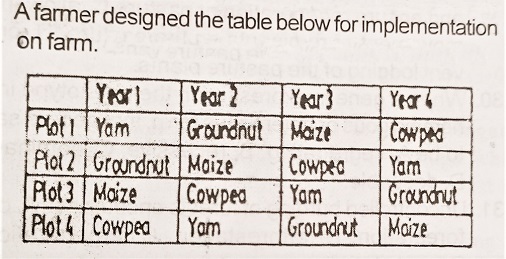 A farmer designed the table below for implementation
on farm.
Year 1 Year 2 Year 3 Year 4
Plot 1 Yam Groundnut Maize Cowpea
Plot 2 Groundnut Maize Cowpea Yam
Plot 3 Maize Cowpea Yam Groundnut
Plot 4 Cowpea Yam Groundnut Maize